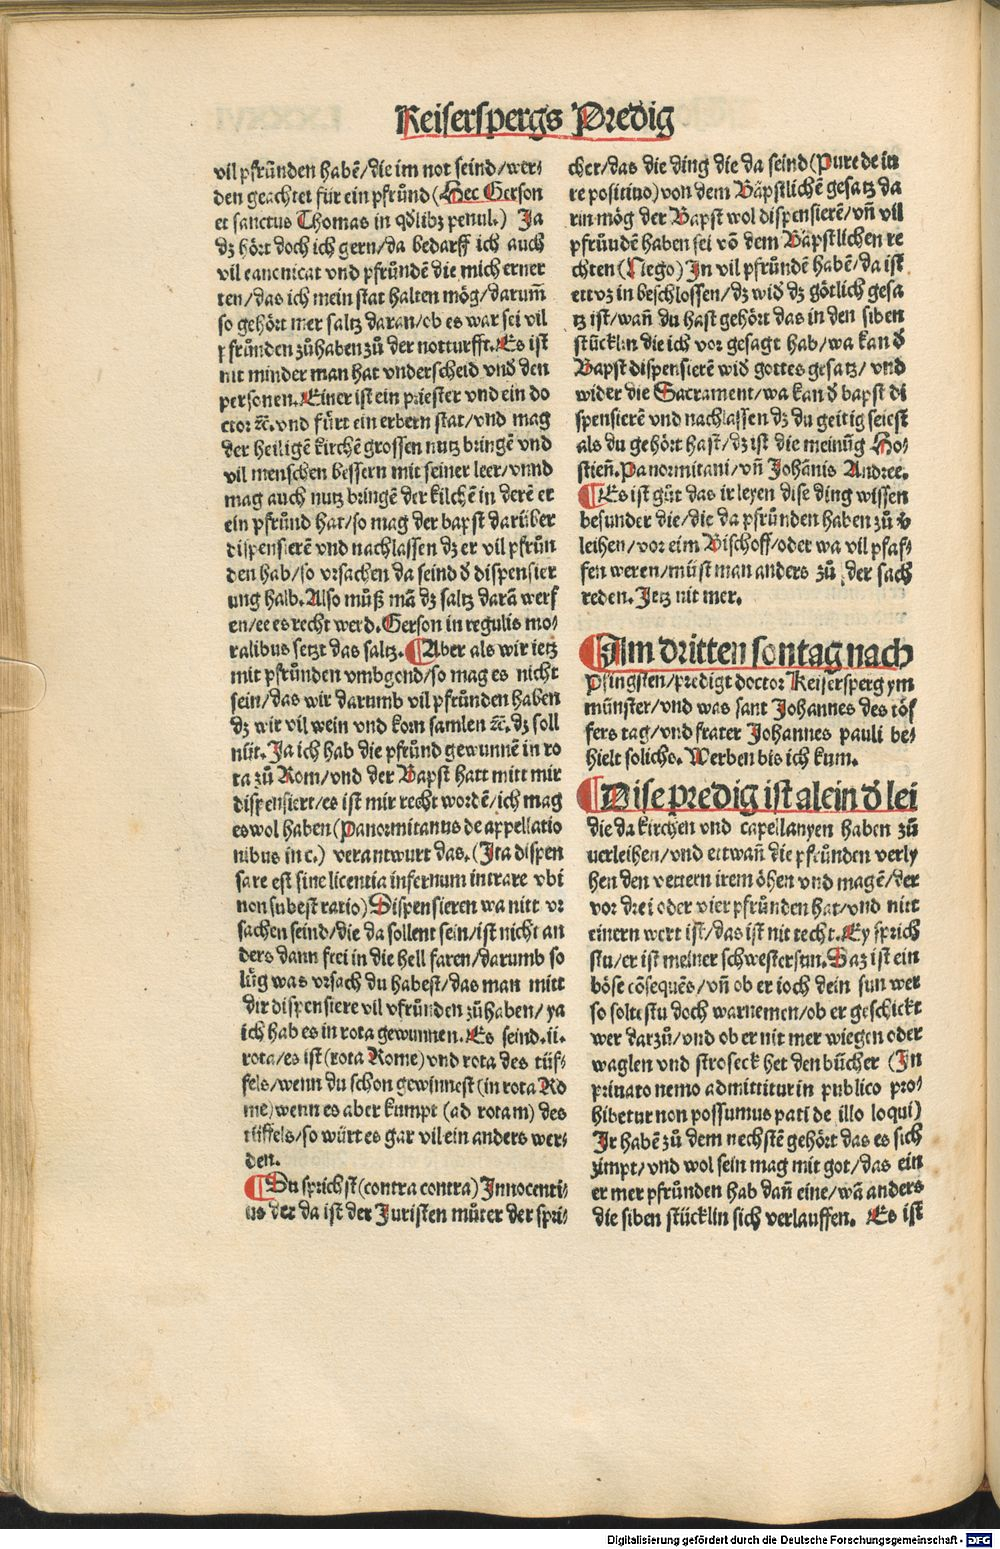 Keiserspergs Predig
vil pfrůnden habē/die im not seind/wer⸗
den geachtet für ein pfrůnd (Hec Gerson
et sanctus Thomas in qdlibz penul.) Ja
dz hört doch ich gern/da bedarff ich auch
vil canonicat vnd pfründē die mich erner
ten/das ich mein stat halten mög/darum̄
so gehört mer saltz daran/ob es war sei vil
pfründen zůhaben zů der notturfft. Es ist
nit minder man hat vnderscheid vnd den
personen. Einer ist ein priester vnd ein do
ctor ꝛc. vnd fürt ein erbern stat/vnd mag
der heiligē kirchē grossen nutz bringē vnd
vil menschen bessern mit seiner leer/vnnd
mag auch nutz bringē der kilchē in derē er
ein pfründ hat/so mag der bapst darüber
dispensierē vnd nachlassen dz er vil pfrün
den hab/so vrsachen da seind d̕ dispensier
ung halb. Also můß mā dz saltz darā werf
en/ee es recht werd. Gerson in regulis mo⸗
ralibus setzt das saltz. ¶Aber als wir ietz
mit pfründen vmbgond/so mag es nicht
sein/das wir darumb vil pfründen haben
dz wir vil wein vnd korn samlen ꝛc. dz soll
nüt. Ja ich hab die pfründ gewunnē in ro
ta zů Rom/vnd der Bapst hatt mitt mir
dispensiert/es ist mir recht wordē/ich mag
es wol haben (Panormitanus de appellatio
nibus in c.) verantwurt das. (Ita dispen
sare est sine licentia infernum intrare vbi
non subest ratio) Dispensieren wa nitt vr
sachen seind/die da sollent sein/ist nicht an
ders dann frei in die hell faren/darumb so
lůg was vrsach du habest/das man mitt
dir dispensiere vil pfründen zůhaben/ya
ich hab es in rota gewunnen. Es seind .ii.
rota/es ist (rota Rome) vnd rota des tüf⸗
fels/wenn du schon gewinnest (in rota Ro
me) wenn es aber kumpt (ad rotam) des
tüffels/so würt es gar vil ein anders wer⸗
den.
¶Du sprichst (contra contra) Innocenti⸗
us der da ist der Juristen můter der spri⸗
cher/das die ding die da seind (Pure de iu
re positiuo) von dem Bäpstlichē gesatz da
rin mög der Bapst wol dispensierē/vn̄ vil
pfründē haben sei vō dem Bäpstlichen re
chten (Nego) In vil pfründē habē/da ist
ettwz in beschlossen/dz wid̕ dz götlich gesa
tz ist/wan̄ du hast gehört das in den siben
stücklin die ich vor gesagt hab/wa kan d̕
Bapst dispensierē wid̕ gottes gesatz/ vnd
wider die Sacrament/wa kan d̕ bapst di
spensierē vnd nachlassen dz du geitig seiest
als du gehört hast/dz ist die meinūg Ho⸗
stien̄. Panormitani/vn̄ Johānis Andree.
¶Es ist gůt das ir leyen dise ding wissen
besunder die/die da pfründen haben zů v̕
leihen/vor eim Bischoff/oder wa vil pfaf⸗
fen weren/müst man anders zů der sach
reden. Jetz nit mer.
¶Am dritten sontag nach
Pfingsten/predigt doctor Keisersperg ym
münster/vnd was sant Johannes des töf
fers tag/vnd frater Johannes pauli be⸗
hielt soliche. Werben bis ich kum.
¶Dise predig ist alein d̕ lei
die da kirchen vnd capellanyen haben zů
verleihen/vnd ettwan̄ die pfründen verly
hen den vettern irem öhen vnd magē/der
vor drei oder vier pfründen hat/vnd nitt
einern wert ist/das ist nit recht. Ey sprich
stu/er ist meiner schwester sun. Daz ist ein
böse cōsequēs/vn̄ ob er ioch dein sun wer
so soltestu doch warnemen/ob er geschickt
wer darzů/vnd ob er nit mer wiegen oder
waglen vnd stroseck het den bücher (In
priuato nemo admittitur in publico pro⸗
hibetur non possumus pati de illo loqui)
Ir habē zů dem nechstē gehört das es sich
zimpt/vnd wol sein mag mit got/das ein
er mer pfründen hab dan̄ eine/wā anders
die siben stücklin sich verlauffen. Es ist
Digitalisierung gefördert durch die Deutsche Forschungsgemeinschaft - DFG